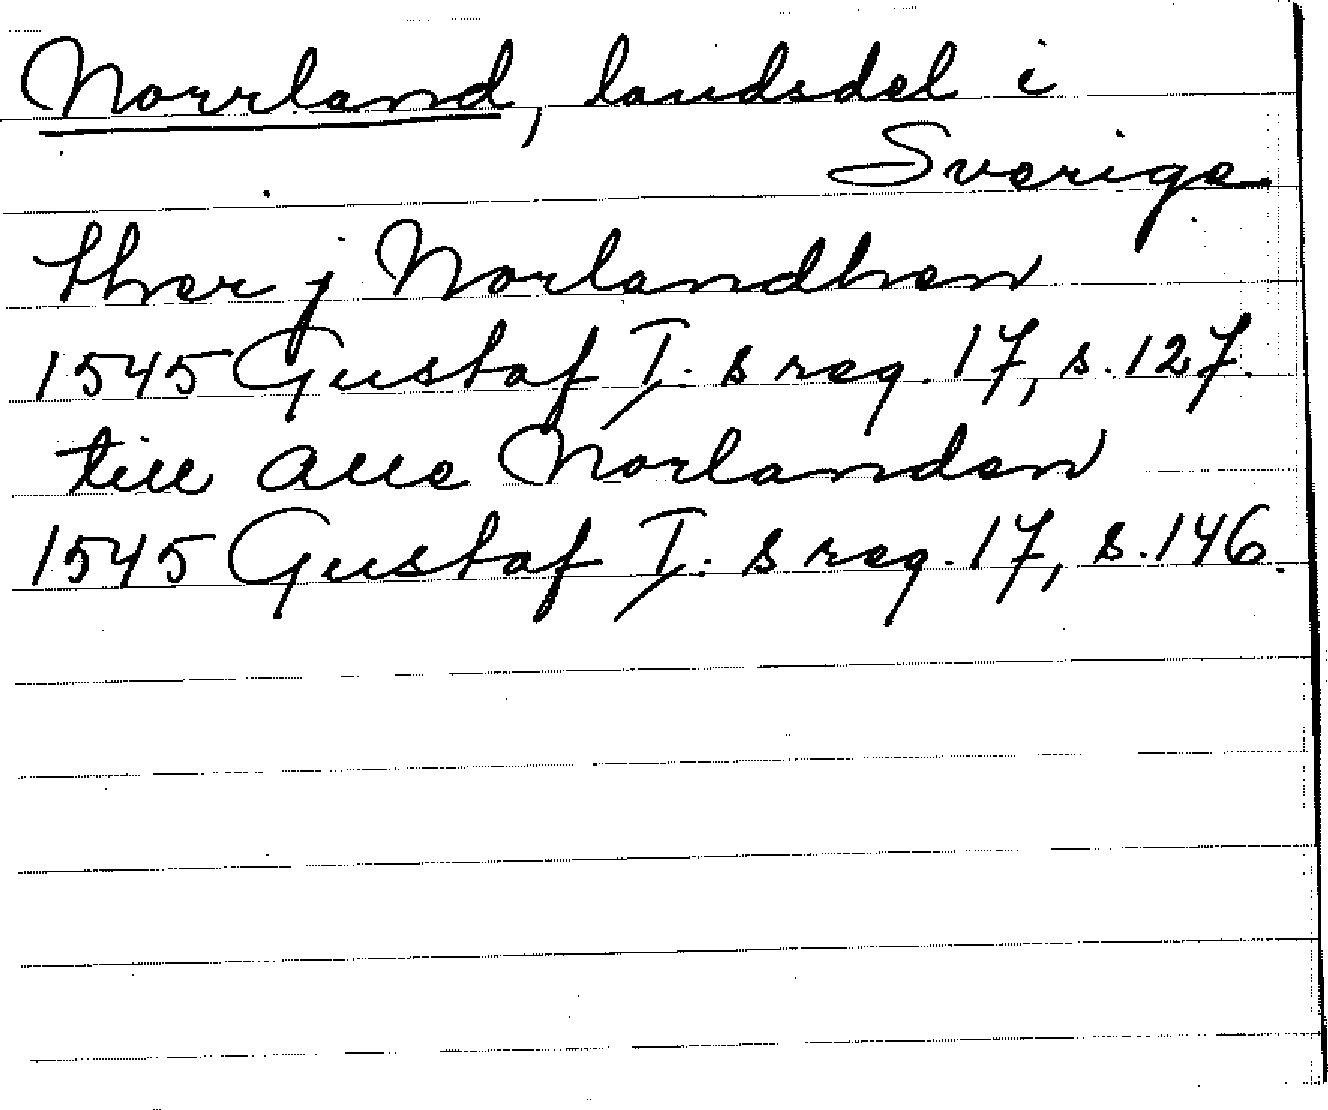 Norrland, landsdel i
Sverige
ther j Norlandhen
1545 Gustaf I:s reg. 17, s. 127.
till alle Norlanden
1545 Gustaf I:s reg. 17, s. 146.